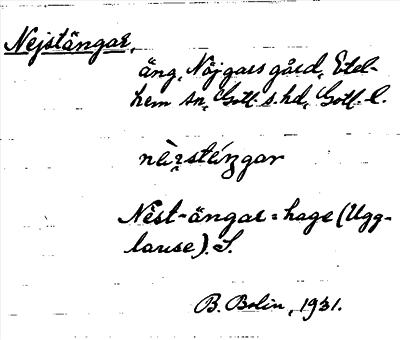 Nejstängar,
äng, Nöjgars gård, Etel-
hem sn, Gotl. s. hd, Gotl. l.
Nest-ängar = hage (Ugg-
larse). S.
B. Bolin, 1931.